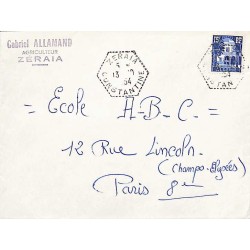 Gabriel ALLAMAND
AGRICULTEUR
ZERAIA
ZERAIA
13
54
CONSTANTINE
15F
54
Ecole A-B-C-
12 Rue Lincoln-
(Champs-Elysées)
Paris 8e